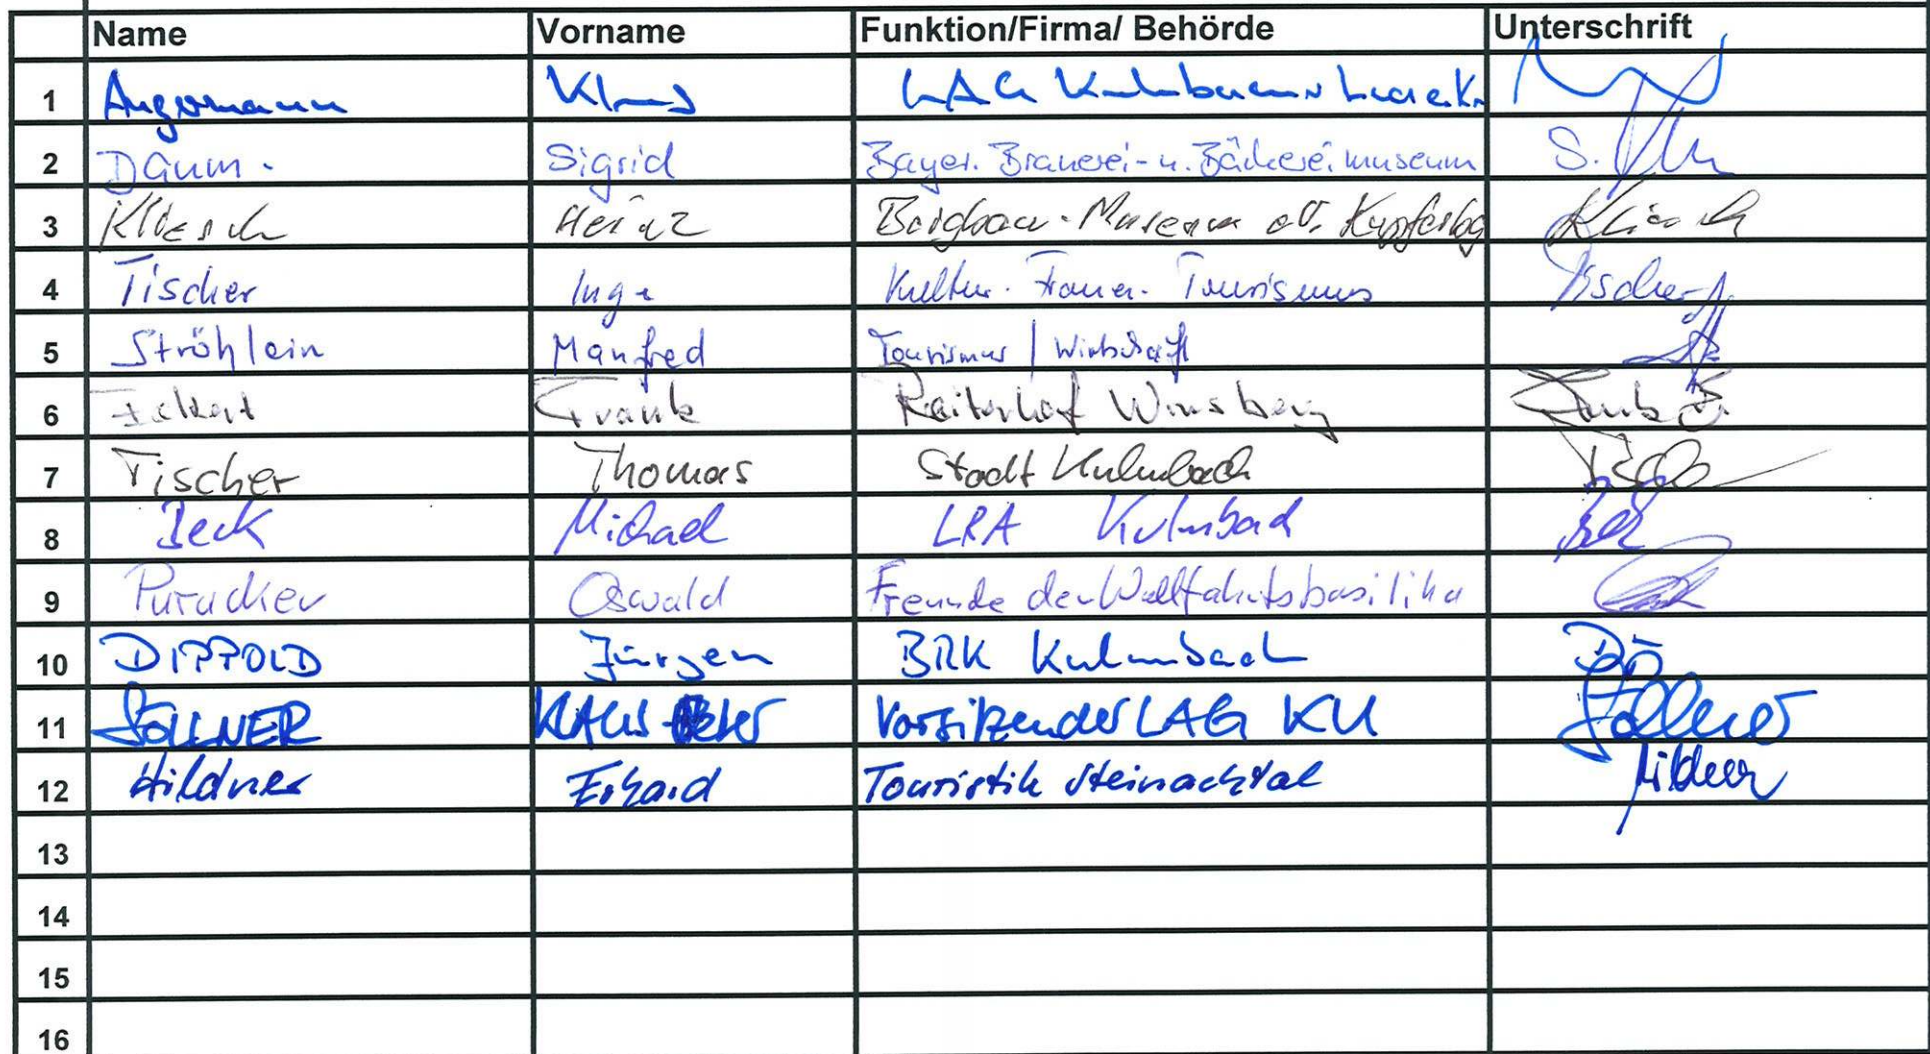 Name Vorname Funktion/Firma/ Behörde Unterschrift
1 Angermann Klaus LAG Kulmbacher Land e.V.
2 Daum. Sigrid Bayer. Brauerei- u. Bäckereimuseum S.
3 Heinz Bergbau-Museum Kupferbg
4 Tischer Inge Kultur. Frauen. Tourismus Tischer
5 Ströhlein Manfred Tourismus / Wirtschaft
6 Eckert Frank Reiterhof Wirsberg
7 Tischer Thomas Stadt Kulmbach
8 Beck Michael LRA Kulmbach
9 Purucker Oswald Freunde der Wallfahrtsbasilika
10 DIPPOLD Jürgen BRK Kulmbach
11 SÖLLNER KLAUS Peter Vorsitzender LAG KU Söllner
12 Hildner Erhard Touristik Steinachtal Hildner
13
14
15
16